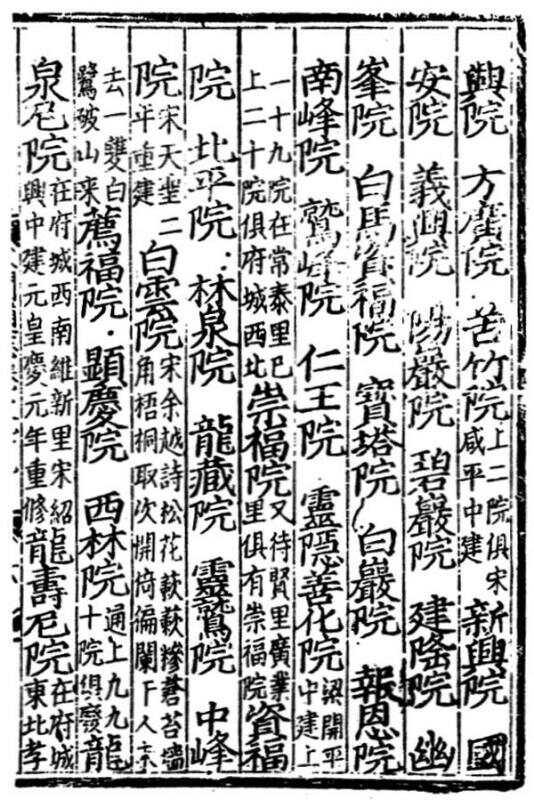 興院　方廣院　苦竹院上二院俱宋咸平中建新興院　國
安院　義興院　陽巖院　碧巖院　建隆院　幽
峯院　白馬資福院　寶塔院　白巖院　報恩院
南峰院　鷲峰院　仁王院　靈隱善化院梁開平中建上
一十九院在常泰里已上二十院俱府城西北崇福院又待賢里廣業里俱有崇福院資福
院　北平院　林泉院　龍藏院　靈鷲院　中峰
院宋天聖二年重建白雲院宋余越詩松花蔌蔌糝蒼苔墻角梧桐取次開倚徧闌干人未
去一雙白鷺破山来薦福院　顯慶院　西林院通上九九十院俱廢龍
泉尼院在府城西南維新里宋紹興中建元皇慶元年重修龍壽尼院在府城東北孝